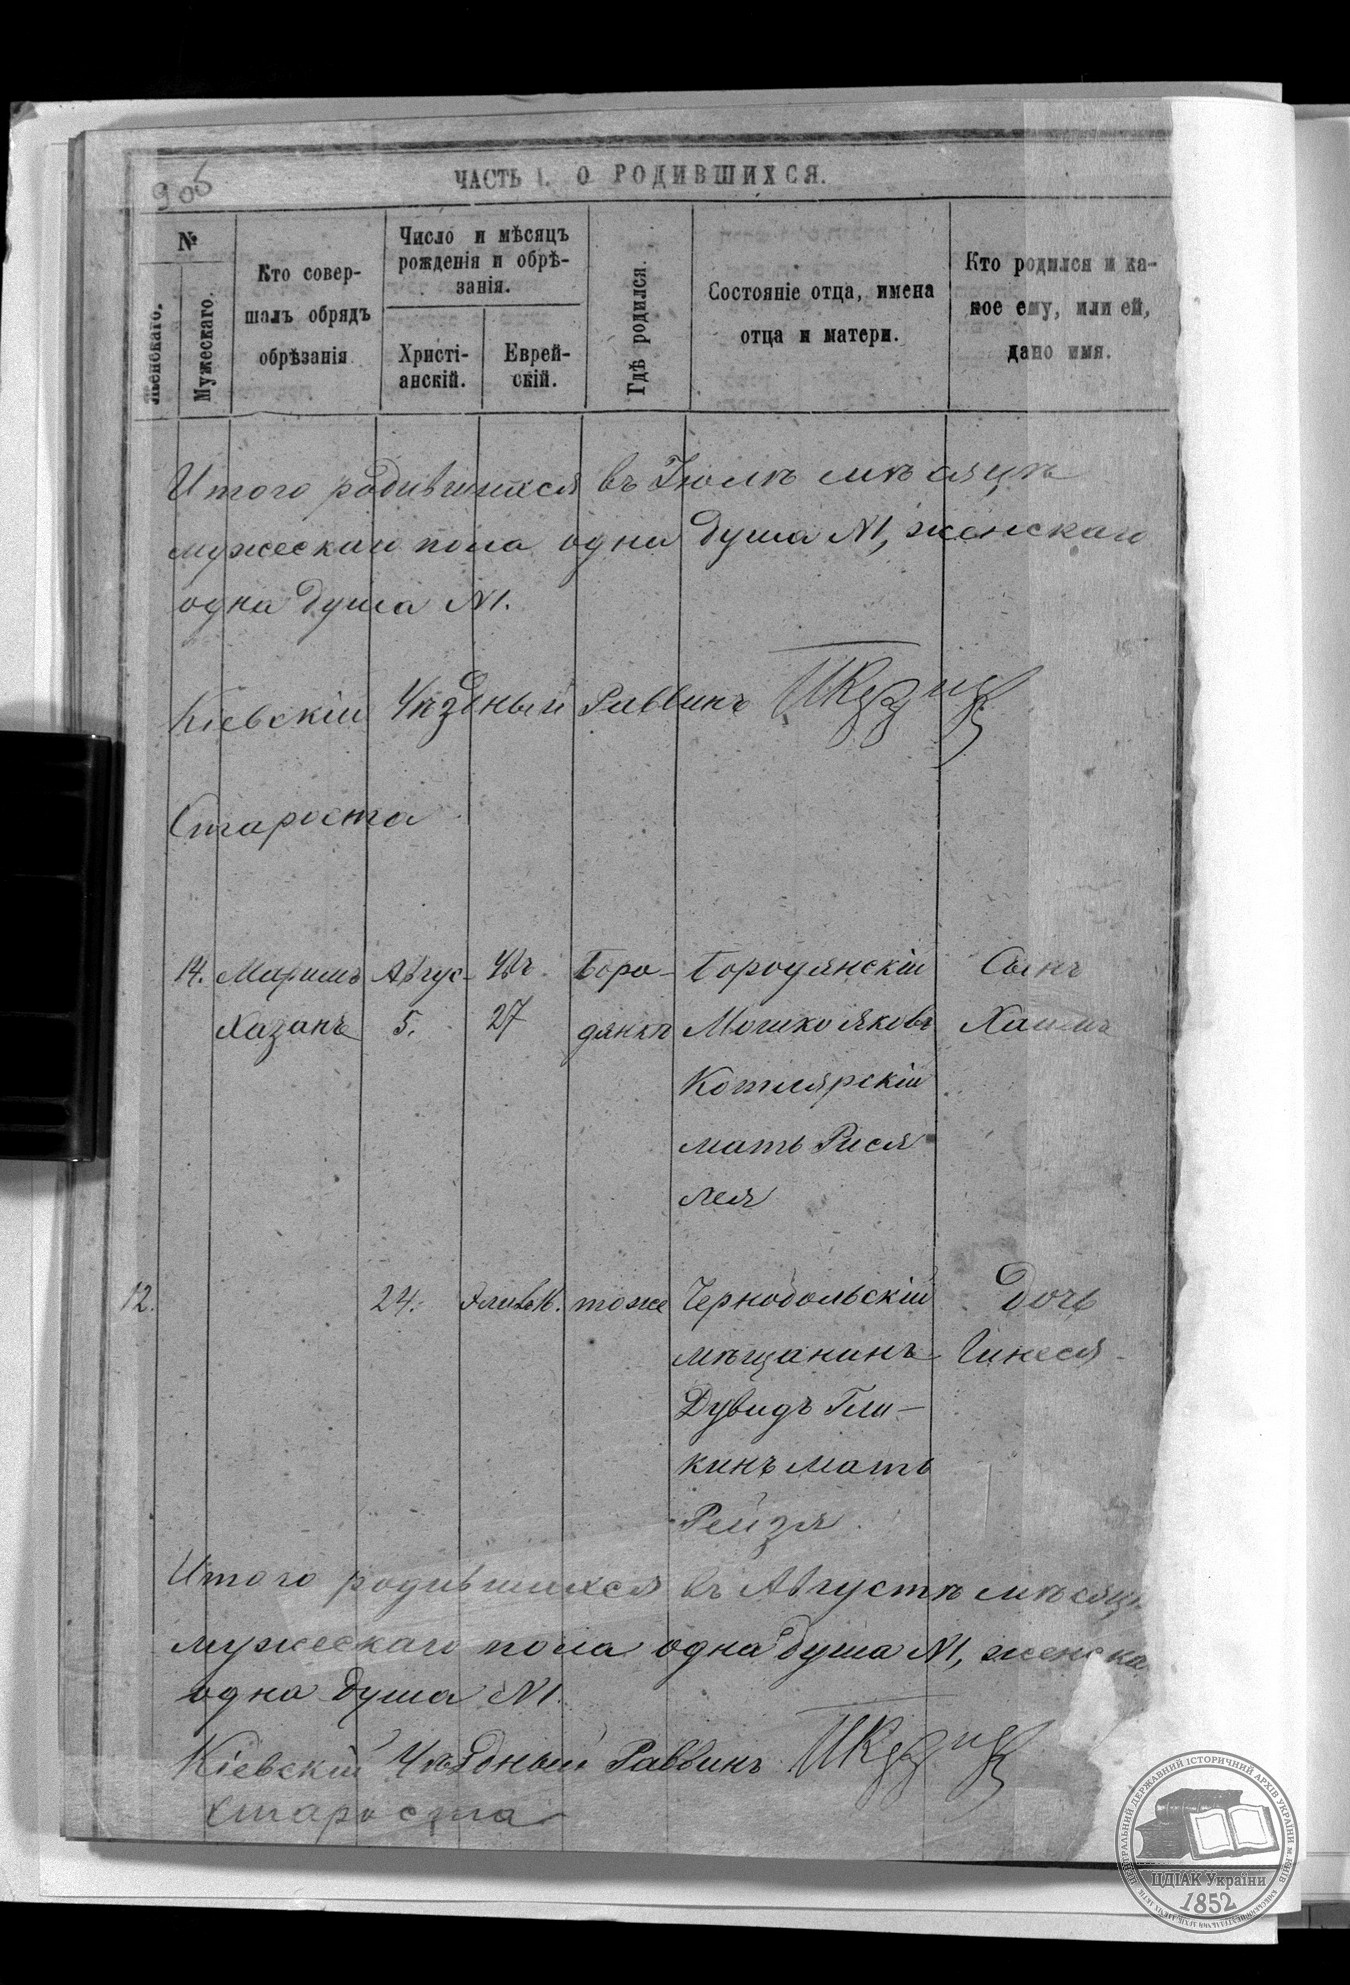 905
ЧАСТЬ I. О РОДИВШИХСЯ.
№
Женскаго.
Мужескаго.
Кто совер-
шалъ обрядъ
обрѣзанія
Число и мѣсяцъ
рожденія и обрѣ-
занія.
Христі-
анскій.
Еврей-
скій.
Гдѣ родился.
Состояніе отца, имена
отца и матери.
Кто родился и ка-
кое ему, или ей,
дано имя.
Итого родившихся въ Іюлѣ мѣсяцѣ
мужескаго пола одна душа №1, женскаго
одна душа №1.
Кіевскій Уѣздный Раввинъ
Староста
14. Авгус- Боро- Бородянскій Сынъ
Хазанъ 5. 27 дянкѣ Мошко Яковъ Хаимъ
Котлярскій
мать Рися
Лея
12. 24. тоже Чернобольскій Дочь
мѣщанинъ Гинеся
Дувидъ Гли-
кинъ мать
Рейзя
Итого родившихся въ Августѣ мѣсяцѣ
мужескаго пола одна душа №1, женска
одна душа №1.
Кіевскій Уѣздный Раввинъ
Староста
ЦЕНТРАЛЬНИЙ ДЕРЖАВНИЙ ІСТОРИЧНИЙ АРХІВ УКРАЇНИ М.КИЇВ
ЦДІАК України
1852